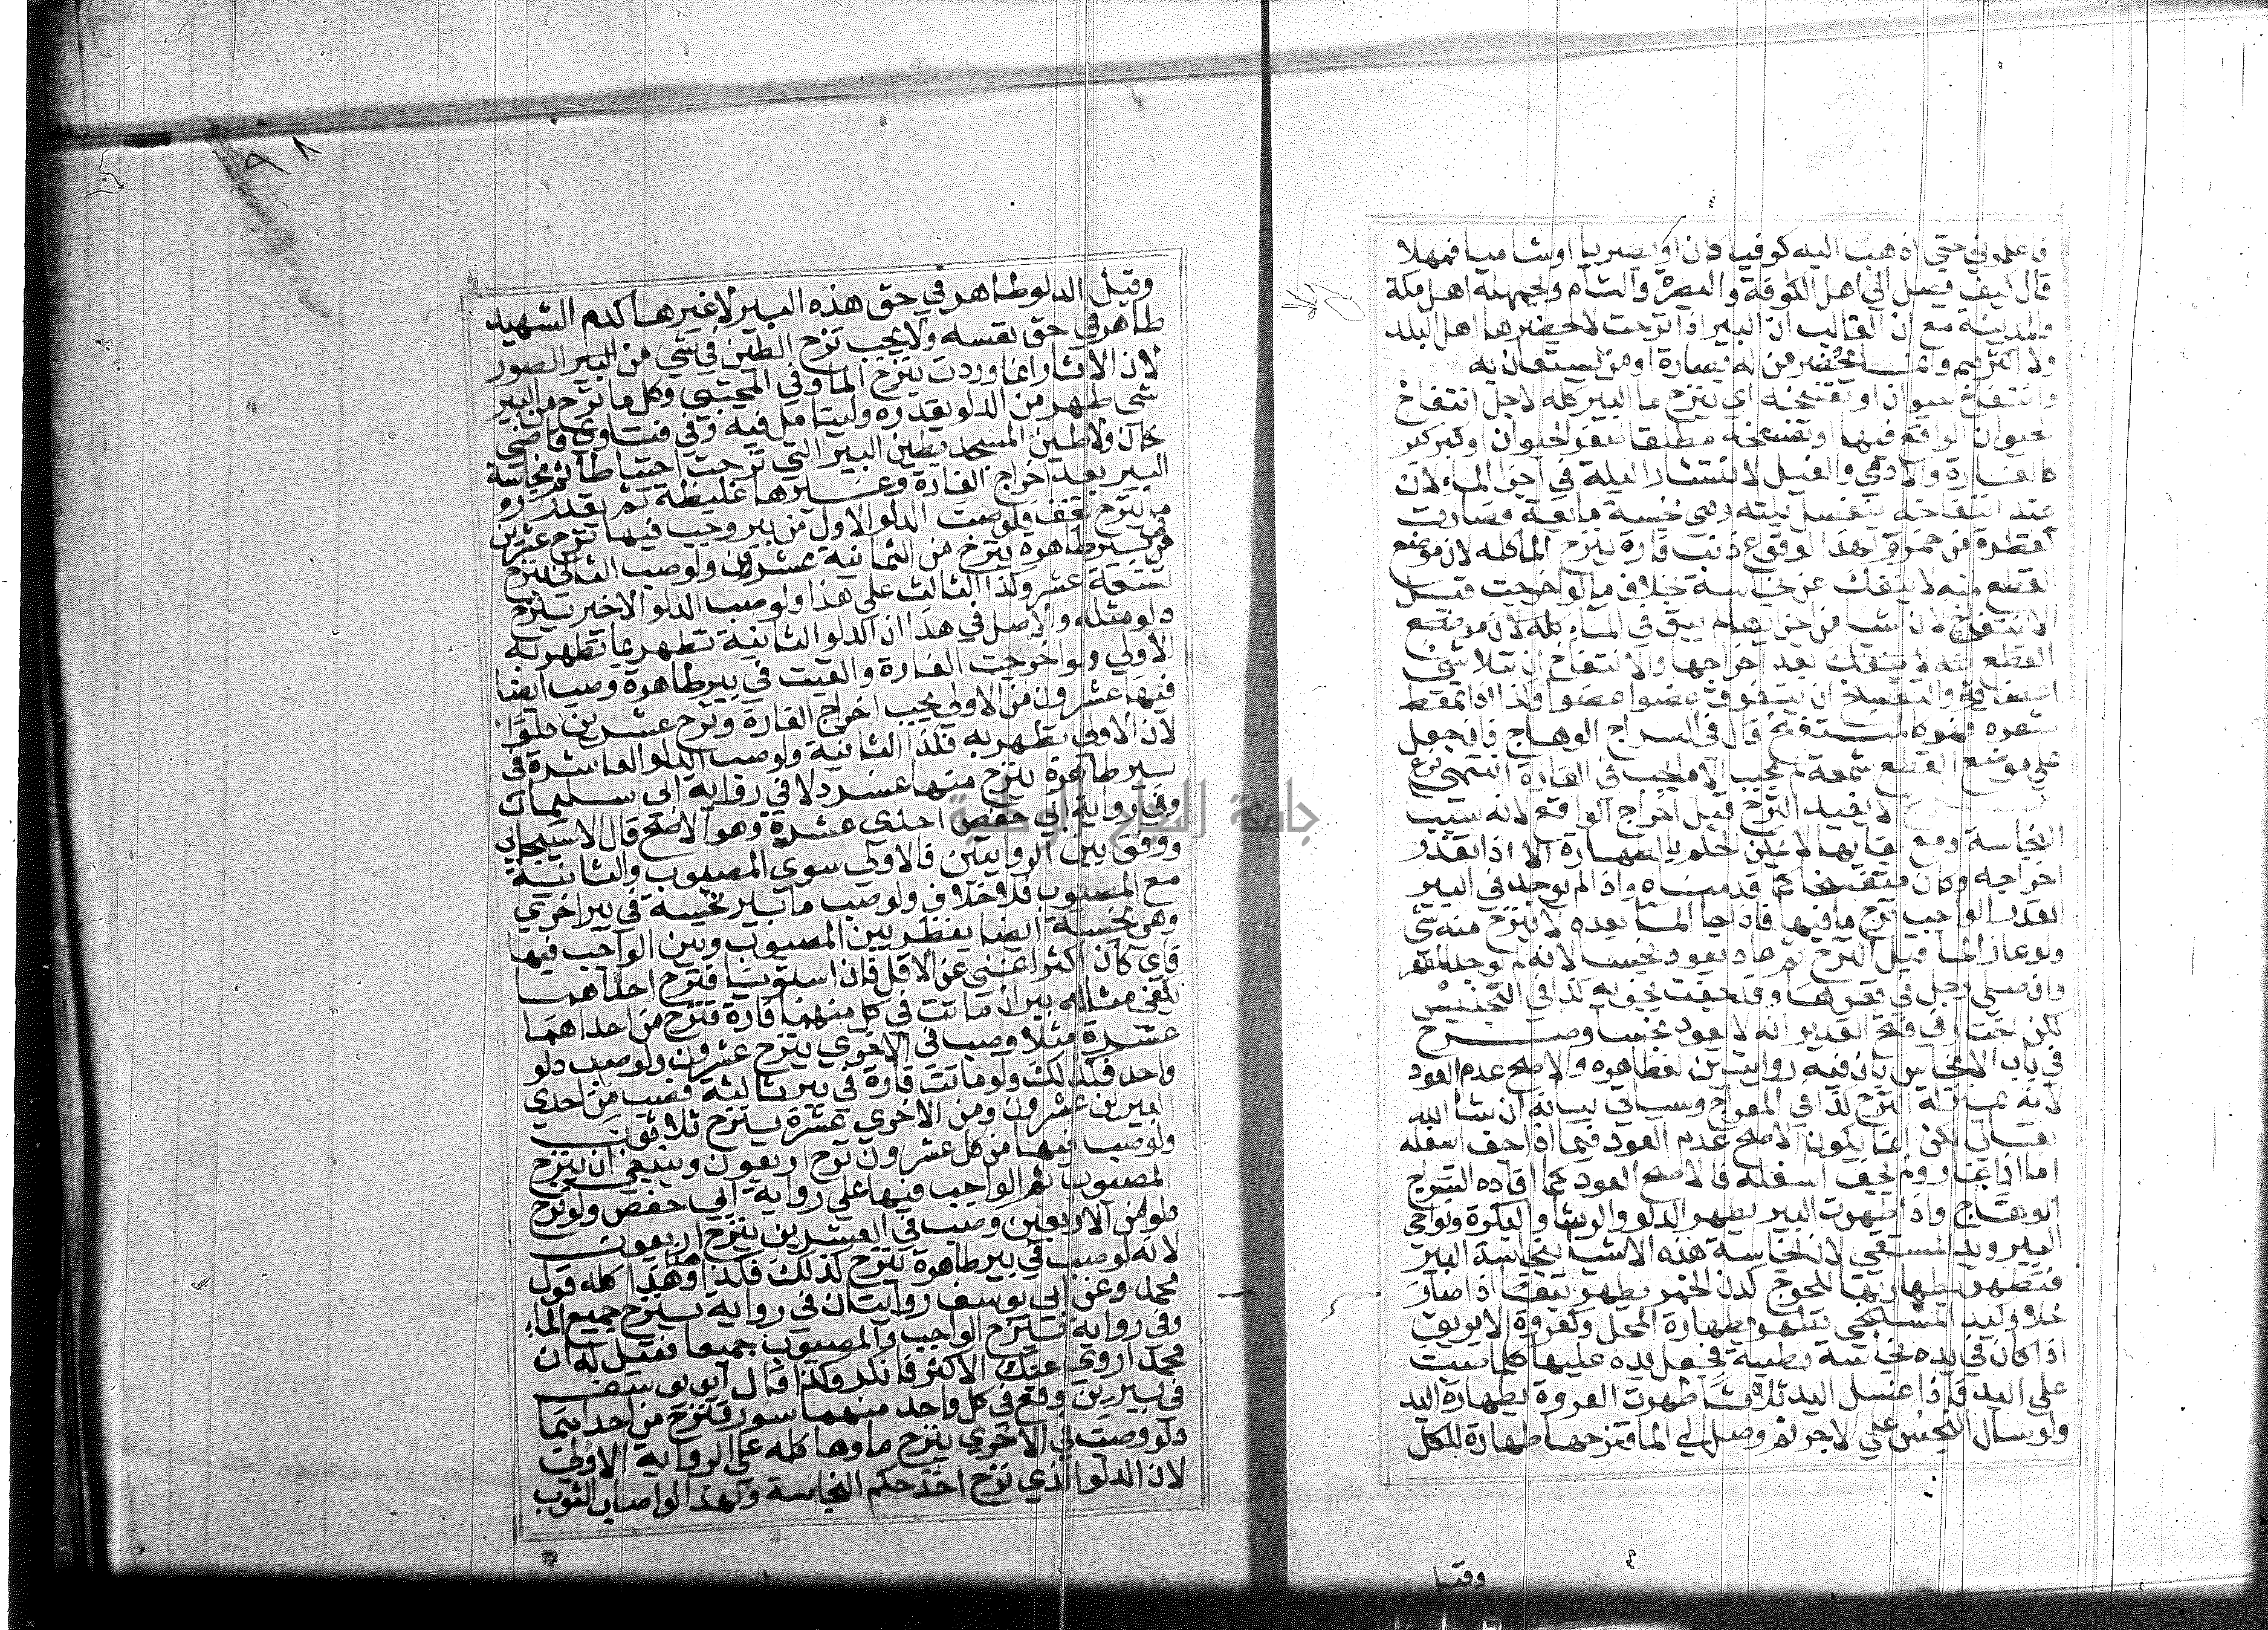 فاعلموني حتى اذهب اليه كوفيا كان او بصريا او شاميا فمهلا
قال كيف يصل الي اهل الكوفة والبصرة والشام ويجهله اهل مكة
والمدينة مع ان الغالب ان البير اذا نزحت لا يحضرها اهل البلد
ولا اكثرهم وانما يحضر من له بصارة او من يستعان به
وانتفاخ حيوان او تفسخه اي ينزح ما البير كله لاجل انتفاخ
حيوان الواقع فيها وتفسخه مطلقا صغر الحيوان او كبر
كالفارة والادمي والفيل لانتشار البلة في اجزا الماء لان
عند انتفاخه ينفصل بلته وهي نجسة مايعة فصارت
كقطرة من خمر ولهذا لو وقع ذنب فارة ينزح الما كله لان موضع
القطع منه لا ينفك عن نجاسة بخلاف ما لو اخرجت قبل
الانتفاخ لان شيا من اجزايها لم يبق في الماء كله لان موضع
القطع منه لا ينفك بعد اخراجها والانتفاخ ان تتلاشى
اعضاوه والتفسخ ان يتفرق عضوا عضوا وكذا اذا تمعط
شعره فهو كالمتفسخ قال في السراج الوهاج فان جعل
على موضع القطع شمعة لم يجب الا ما يجب في الفارة انتهى
لا يفيد النزح قبل اخراج الواقع لانه سبب
النجاسة ومع بقايها لا يمكن الحكم بالطهارة الا اذا تعذر
اخراجه وكان متفسخا كما قدمناه واذا لم يوجد في البير
القدر الواجب نزح ما فيها فاذا جا الما بعده لا ينزح منه شي
ولو غار الما قبل النزح ثم عاد يعود نجسا لانه لم يوجد المطهر
وان صلى رجل في قعرها وقد جفت يجزيه كذا في التجنيس
لكن اختار في فتح القدير انه لا يعود نجسا وصرح
في باب الانجاس بان فيه روايتين نظايره والاصح عدم العود
لانه بمنزلة النزح كذا في المعراج وسياتي بيانه ان شا الله
تعالى لكن انما يكون الاصح عدم العود فيما اذا جف اسفله
اما اذا غار ولم يجف اسفله فالاصح العود كما افاده السراج
الوهاج واذا طهرت البير يطهر الدلو والرشا والبكرة ونواحي
البير ويد المستقي لان نجاسة هذه الاشيا بنجاسة البير
فتطهر بطهارتها للحرج كدن الخمر يطهر تبعا اذا صار
خلا وكيد المستنجي تطهر بطهارة المحل وكعروة الابريق
اذا كان في يده نجاسة رطبة فجعل يده عليها كلما صب
على اليد فاذا غسل اليد ثلاثا طهرت العروة بطهارة اليد
ولو سال النجس على الاجر ثم وصل الي الما فنزحها طهارة للكل
وقيل
وقيل الدلو طاهر في حق هذه البير لا غيرها كدم الشهيد
طاهر في حق نفسه ولا يجب نزح الطين في شي من البير الصور
لان الاثار انما وردت بنزح الما وفي المجتبى وكل ما نزح من البير
شي طهر من الدلو بقدره وليتامل فيه وفي فتاوي قاضي
خان ولا طين المسجد بطين البير التي نزحت احتياطا ثم نجاسة
البير بعد اخراج الفارة وغيرها غليظة ثم بقدر
ما ينزح تخفف فلو صب الدلو الاول من بير وجب فيها نزح عشرين
في بير طاهرة ينزح من الثمانية عشرون ولو صب الثاني ينزح
تسعة عشر وكذا الثالث على هذا ولو صب الدلو الاخير ينزح
دلو مثله والاصل في هذا ان الدلو الثانية تطهر بما تطهر به
الاولي ولو اخرجت الفارة والقيت في بير طاهرة وصب ايضا
فيها عشرون من الاولي يجب اخراج الفارة ونزح عشرين دلوا
لان الاولى تطهر به فكذا الثانية ولو صب الدلو العاشرة في
بير طاهرة ينزح منها عشر دلا في رواية ابي سليمان
وفي رواية ابي حفص احدى عشرة وهو الاصح قال الاسبيجابي
ووفق بين الروايتين فالاولى سوى المصبوب والثانية
مع المصبوب فلا خلاف ولو صب ما بير نجسة في بير اخرى
وهي نجسة ايضا ينظر بين المصبوب وبين الواجب فيها
فاى كان اكثر اغنى عن الاقل فان استويا فنزح احداهما
يكفي مثاله بيران ماتت في كل منهما فارة فنزح من احداهما
عشرة مثلا وصب في الاخري ينزح عشرون ولو صب دلو
واحد فكذلك ولو ماتت فارة في بير ثالثة فصب من احدي
البيرين عشرون ومن الاخري عشرة ينزح ثلاثون
ولو صب فيها من كل عشرون نزح اربعون وينبغي ان ينزح
المصبوب ثم الواجب فيها على رواية ابي حفص ولو نزح
دلو من الاربعين وصب في العشرين ينزح اربعون
لانه لو صب في بير طاهرة نزح كذلك فكذا هنا وهذا كله قول
محمد وعن ابي يوسف روايتان في رواية ينزح جميع الماء
وفي رواية ينزح الواجب والمصبوب جميعا فقيل له ان
محمدا روي عنك الاكثر فانكر وكذا قال ابو يوسف
في بيرين وقع في كل واحد منهما سنور فنزح من احداهما
دلو وصب في الاخري ينزح ماوها كله على الرواية الاولي
لان الدلو الذي نزح اخذ حكم النجاسة ولهذا لو اصاب الثوب